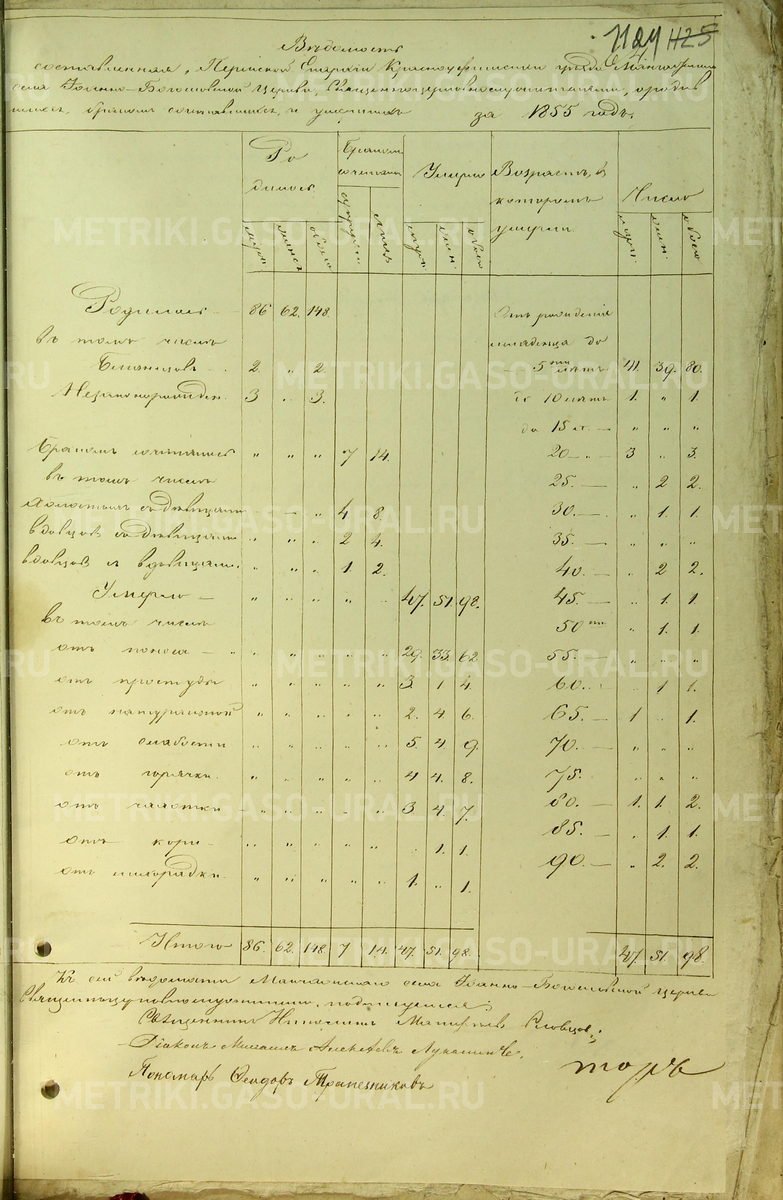 1124 1125
Вѣдомость
составленная, Пермской Епархіи Красноуфимскаго уѣзда
села Іоанно-Богословской Церкви, Священноцерковнослужителями, о родив
шихся, бракомъ сочетавшихся, и умершихъ за 1855 годъ.
Ро
дилось
Бракомъ
сочетались
Умерло
Возрастъ, въ
которомъ
умерли
Число
муж. женс. обоего лицъ муж. жен. обоего муж. жен. обоего
Родилось 86. 62. 148. Отъ рожденія
въ томъ числѣ младенца до
Близнецовъ 2. „ 2. 5ти лѣтъ 41. 39. 80.
Незаконорожден. 3 „ 3. до 10 лѣтъ 1. „ 1.
до 15 л. — „ „ „
Бракомъ сочеталось „ „ „ 7 14. 20 — 3 „ 3.
въ томъ числѣ 25. — „ 2 2.
Холостыхъ съ дѣвицами „ „ 4 8. 30. — „ 1. 1.
вдовцовъ съ дѣвицами „ „ „ 2 4. 35. — „ „ „
вдовцовъ и вдовицами „ „ „ 1. 2. 40. — „ 2 2.
Умерло — „ „ „ „ „ 47. 51. 98. 45. — „ 1. 1.
въ томъ числѣ 50ти „ 1. 1.
отъ поноса — „ „ „ „ „ 29. 33. 62. 55. — „ „ „
отъ простуды „ „ „ „ „ 3. 1 4. 60. — „ 1 1.
отъ натуральной „ „ „ „ „ 2. 4 6. 65. — 1 „ 1.
отъ слабости „ „ „ „ „ 5. 4. 9. 70. — „ „ „
отъ горячки „ „ „ „ „ 4 4. 8. 75. „ „ „
отъ чахотки „ „ „ „ „ 3. 4. 7. 80. — 1. 1. 2.
отъ кори „ „ „ „ „ „ 1. 1. 85. — „ 1. 1.
отъ лихорадки „ „ „ „ „ 1. „ 1. 90. — „ 2. 2.
Итого 86. 62. 148 7 14. 47. 51. 98. 47. 51. 98
Къ сей вѣдомости села Іоанно-Богословской церкви
Священноцерковнослужители, подписуемся:
Священникъ Николай Словцовъ
Діаконъ Михаилъ Алексѣевъ
Пономарь Ѳеодоръ Трапезниковъ
METRIKI.GASO-URAL.RU